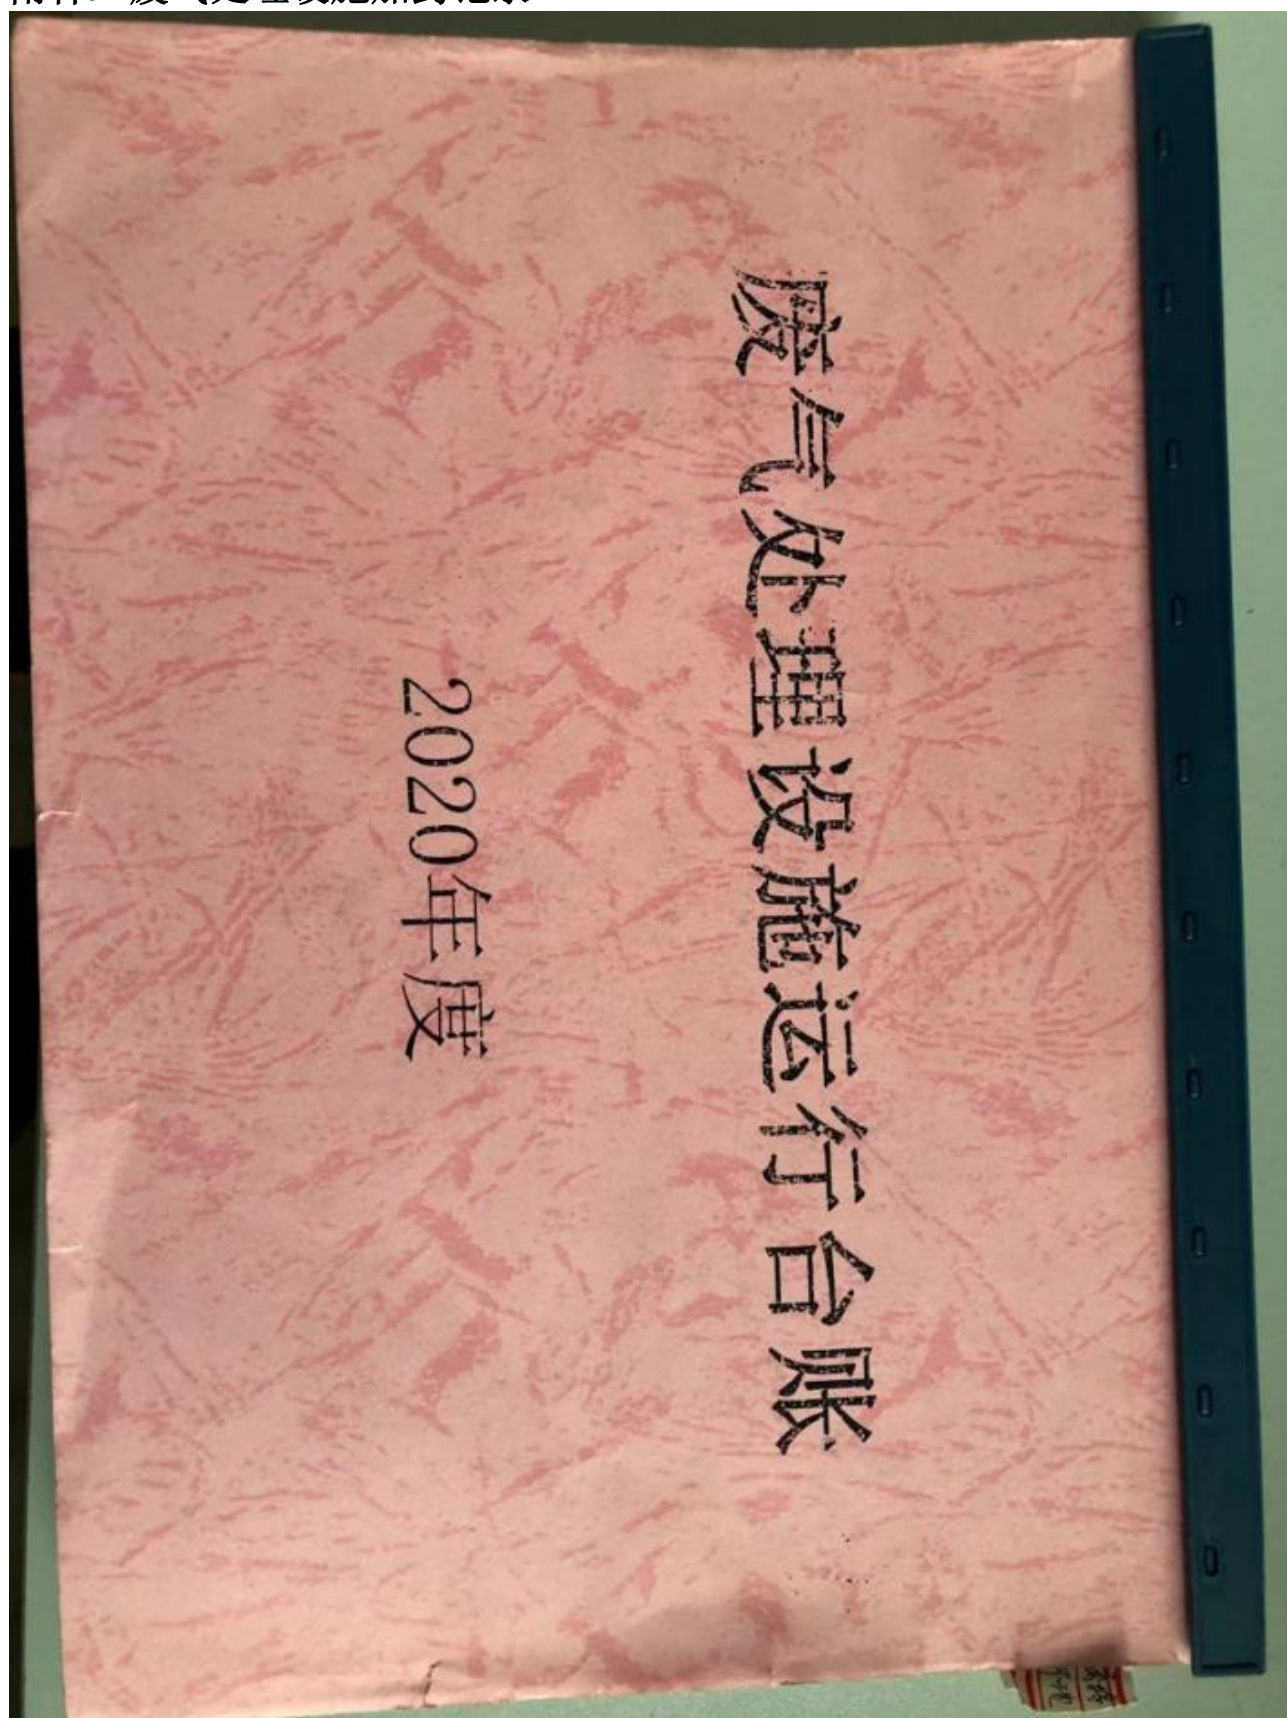 废气处理设施运行台账
2020年度